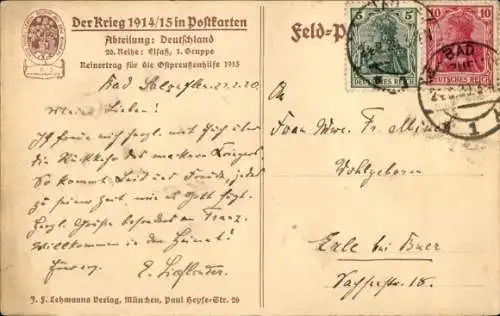 Der Krieg 1914/15 in Postkarten
Abteilung: Deutschland
20. Reihe: Elsaß, 1. Gruppe
Reinertrag für die Ostpreußenhilfe 1915
Feld-Po
5 5
DEUTSCHES REICH
10 10
DEUTSCHES REICH
BAD
1
Bad 22.2.20.
Lieben!
Ich freue mich herzl. mit Euch über
die Rückkehr des wackeren Kriegers.
So kommt Leid und Freude, jedes
zu seiner Zeit, wie es Gott fügt.
Herzl. Grüße besonders an Franz.
Willkommen in der Heimat!
E.
An
Frau Wwe. Fr.
Wohlgeboren
Erle bei Buer
18.
J. F. Lehmanns Verlag, München, Paul Heyse-Str. 26